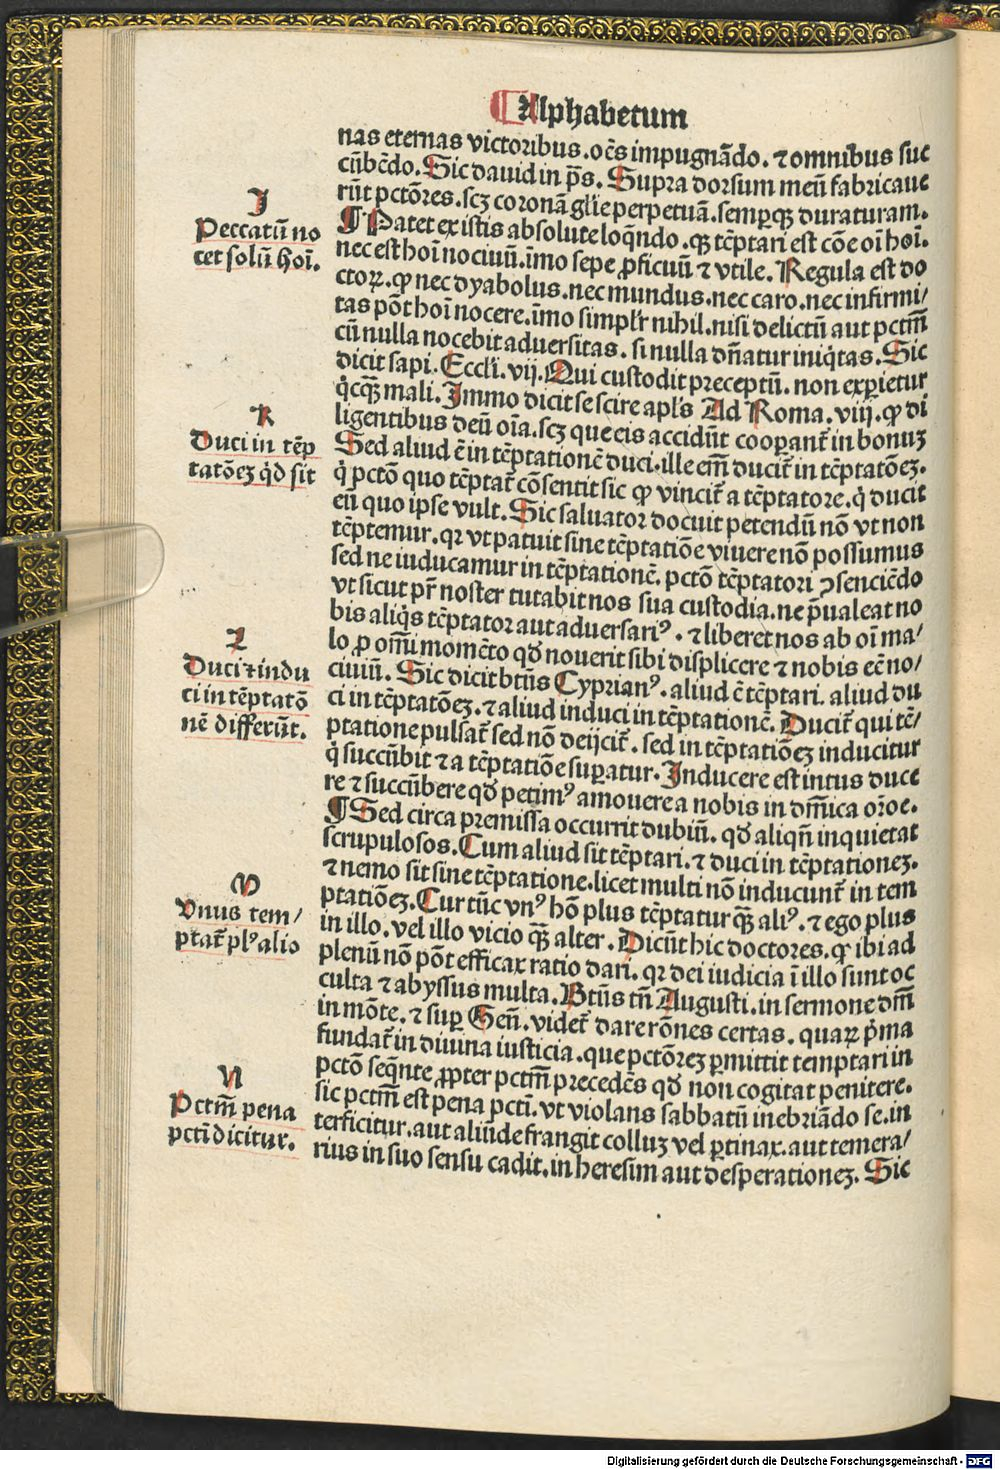 ¶ Alphabetum
nas eternas victoribus . oēs impugnādo . ⁊ omnibus suc
cūbēdo . Sic dauid in p̄s . Supra dorsum meū fabricaue
rūt pctōres . scꝫ coronā glīe perpetuā . semperqꝫ duraturam .
¶ Patet ex istis absolute loq̄ndo . qꝫ tēptari est cōe oī hoī .
nec est hoī nociuū . īmo sepe ꝓficuū ⁊ vtile . Regula est do
ctoꝝ . ꝙ nec dyabolus . nec mundus . nec caro . nec infirmi/
tas pōt hoī nocere . īmo simplr̄ nihil . nisi delictū aut pctm̄
cū nulla nocebit aduersitas . si nulla dn̄atur iniq̇tas . Sic
dicit sapi . Eccl'i . vij . Qui custodit preceptū . non experietur
q̇cqꝫ mali . Immo dicit se scire apl's Ad Roma . viij . ꝙ di
ligentibus deū oīa . scꝫ que eis accidūt cooperant᷑ in bonuꝫ
Sed aliud ē in tēptationē duci . ille em̄ ducit᷑ in tēptatōeꝫ .
q̇ pctō quo tēptat᷑ cōsentit sic ꝙ vincit᷑ a tēptatore . q̇ ducit
eū quo ipse vult . Sic saluator docuit petendū nō vt non
tēptemur . qꝛ vt patuit sine tēptatiōe viuere nō possumus
sed ne iuducamur in tēptationē . pctō tēptatori ꝯsenciēdo
vt sicut pr̄ noster tutabit nos sua custodia . ne p̄ualeat no
bis aliq̇s tēptator aut aduersariꝰ . ⁊ liberet nos ab oī ma/
lo ꝓ om̄i momēto qd̄ nouerit sibi displicere ⁊ nobis eē no/
ciuiū . Sic dicit btūs Cyprianꝰ . aliud ē tēptari . aliud du
ci in tēptatōeꝫ . ⁊ aliud induci in tēptationē . Ducit᷑ qui tē/
ptatione pulsat᷑ sed nō deijcit᷑ . sed in tēptatiōeꝫ inducitur
q̇ succūbit ⁊ a tēptatiōe superatur . Inducere est intus duce
re ⁊ succūbere qd̄ petimꝰ amouere a nobis in dm̄ica orōe .
¶ Sed circa premissa occurrit dubiū . qd̄ aliqn̄ inquietat
scrupulosos . Cum aliud sit tēptari . ⁊ duci in tēptationeꝫ .
⁊ nemo sit sine tēptatione . licet multi nō inducunt᷑ in tem
ptatiōeꝫ . Cur tūc vnꝰ hō plus tēptatur qꝫ̄ aliꝰ . ⁊ ego plus
in illo . vel illo vicio qꝫ̄ alter . Dicūt hic doctores . ꝙ ibi ad
plenū nō pōt efficax ratio dari . qꝛ dei iudicia ī illo sunt oc
culta ⁊ abyssus multa . Btūs tn̄ Augusti . in sermone dm̄
in mōte . ⁊ super Gen̄ . videt᷑ dare rōnes certas . quaꝝ ṗma
fundat᷑ in diuina iusticia . que pctōreꝫ permittit temptari in
pctō seq̄nte ꝓpter pctm̄ precedēs qd̄ non cogitat penitere .
sic pctm̄ est pena pcti . vt violans sabbatū inebriādo se . in
terficitur . aut aliūde frangit colluꝫ vel pertinax . aut temera/
rius in suo sensu cadit . in heresim aut desperationeꝫ . Sic
I
Peccatū no
cet solū hoī .
K
Duci in tēp
tatōeꝫ q̇d sit
L
Duci ⁊ indu
ci in tēptatō
nē differūt .
M
Vnus tem/
ptat᷑ plꝰ alio
N
Pctm̄ pena
pcti dicitur .
Digitalisierung gefördert durch die Deutsche Forschungsgemeinschaft - DFG